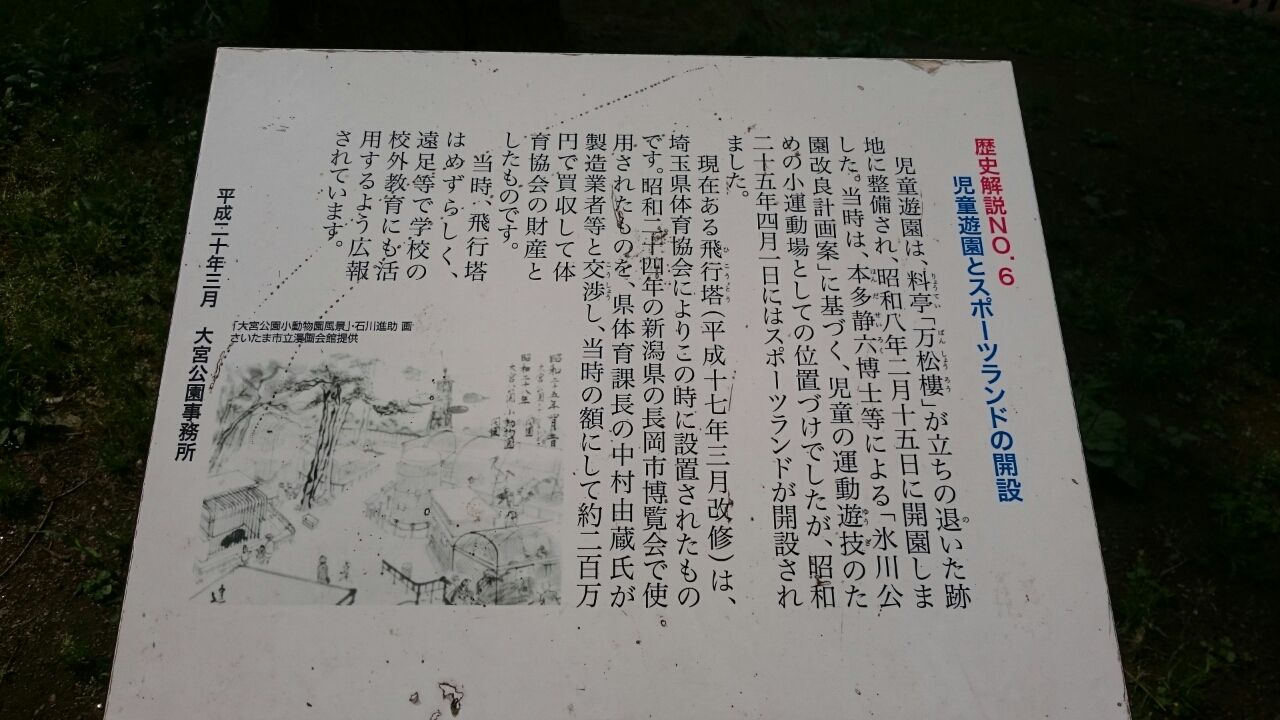 歴史解説NO.6
児童遊園とスポーツランドの開設
児童遊園は、料亭「万松樓」が立ちの退いた跡
地に整備され、昭和八年二月十五日に開園しま
した。当時は、本多静六博士等による「氷川公
園改良計画案」に基づく、児童の運動遊技のた
めの小運動場としての位置づけでしたが、昭和
二十五年四月一日にはスポーツランドが開設され
ました。
現在ある飛行塔(平成十七年三月改修)は、
埼玉県体育協会によりこの時に設置されたもの
です。昭和二十四年の新潟県の長岡市博覧会で使
用されたものを、県体育課長の中村由蔵氏が
製造業者等と交渉し、当時の額にして約二百万
円で買収して体
育協会の財産と
したものです。
当時、飛行塔
はめずらしく、
遠足等で学校の
校外教育にも活
用するよう広報
されています。
「大宮公園小動物園風景」・石川進助 画
さいたま市立漫画会館提供
平成二十年三月 大宮公園事務所